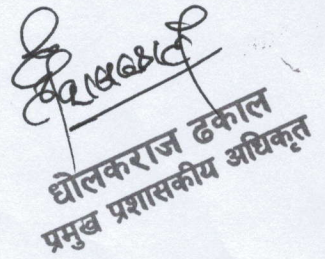 धोलकराज ढकाल
प्रमुख प्रशासकीय अधिकृत